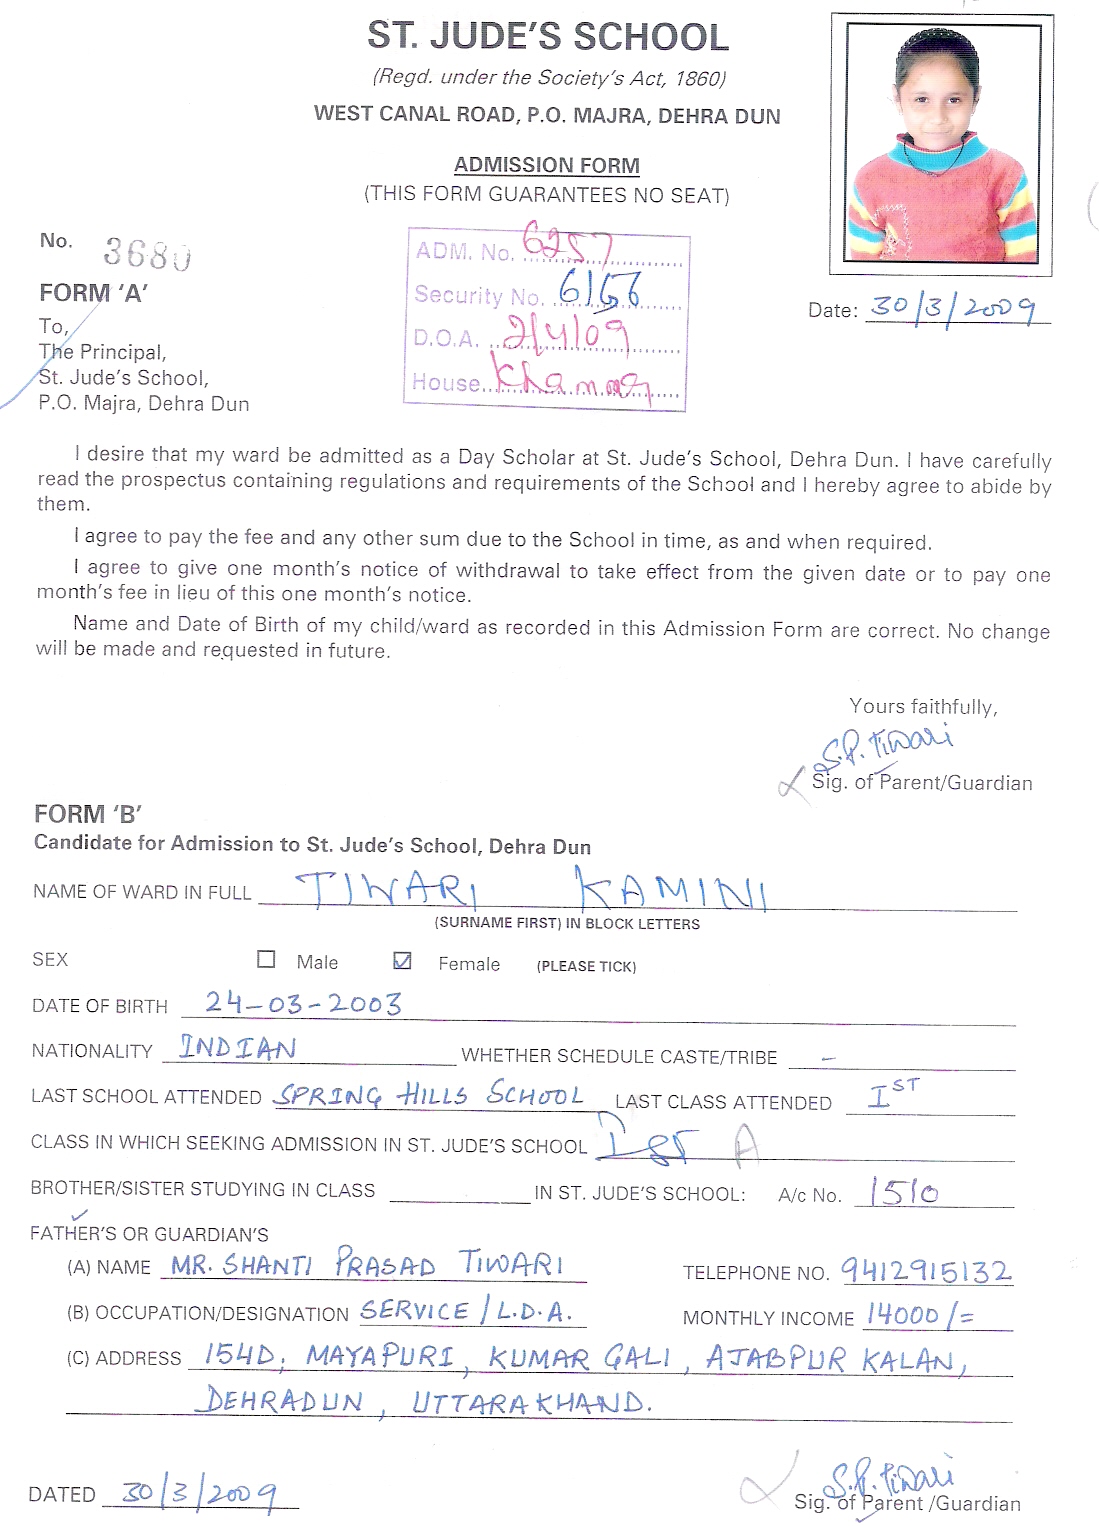 ST. JUDE'S SCHOOL
(Regd. under the Society's Act, 1860)
WEST CANAL ROAD, P.O. MAJRA, DEHRA DUN
ADMISSION FORM
(THIS FORM GUARANTEES NO SEAT)
No. 3680
ADM. No. 6257
Security No. 6166
D.O.A. 2/4/09
House
Date: 30/3/2009
FORM 'A'
To,
The Principal,
St. Jude's School,
P.O. Majra, Dehra Dun
I desire that my ward be admitted as a Day Scholar at St. Jude's School, Dehra Dun. I have carefully
read the prospectus containing regulations and requirements of the School and I hereby agree to abide by
them.
I agree to pay the fee and any other sum due to the School in time, as and when required.
I agree to give one month's notice of withdrawal to take effect from the given date or to pay one
month's fee in lieu of this one month's notice.
Name and Date of Birth of my child/ward as recorded in this Admission Form are correct. No change
will be made and requested in future.
Yours faithfully,
S.P. Tiwari
Sig. of Parent/Guardian
FORM 'B'
Candidate for Admission to St. Jude's School, Dehra Dun
NAME OF WARD IN FULL TIWARI KAMINI
(SURNAME FIRST) IN BLOCK LETTERS
SEX Male Female (PLEASE TICK)
DATE OF BIRTH 24-03-2003
NATIONALITY INDIAN WHETHER SCHEDULE CASTE/TRIBE –
LAST SCHOOL ATTENDED SPRING HILLS SCHOOL LAST CLASS ATTENDED IST
CLASS IN WHICH SEEKING ADMISSION IN ST. JUDE'S SCHOOL Ist A
BROTHER/SISTER STUDYING IN CLASS IN ST. JUDE'S SCHOOL: A/c No. 1510
FATHER'S OR GUARDIAN'S
(A) NAME MR. SHANTI PRASAD TIWARI TELEPHONE NO. 9412915132
(B) OCCUPATION/DESIGNATION SERVICE / L.D.A. MONTHLY INCOME 14000/=
(C) ADDRESS 154D, MAYAPURI, KUMAR GALI, AJABPUR KALAN,
DEHRADUN, UTTARAKHAND.
DATED 30/3/2009
S.P. Tiwari
Sig. of Parent /Guardian